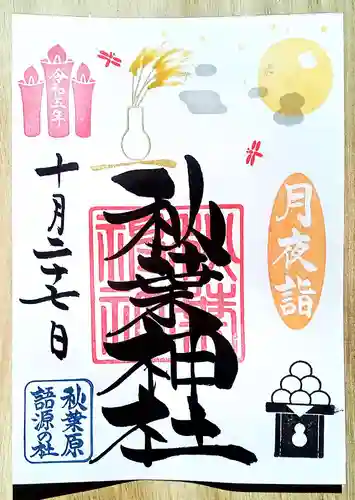 月夜詣
秋葉神社
令和五年
十月二十七日
秋葉原
語源の社